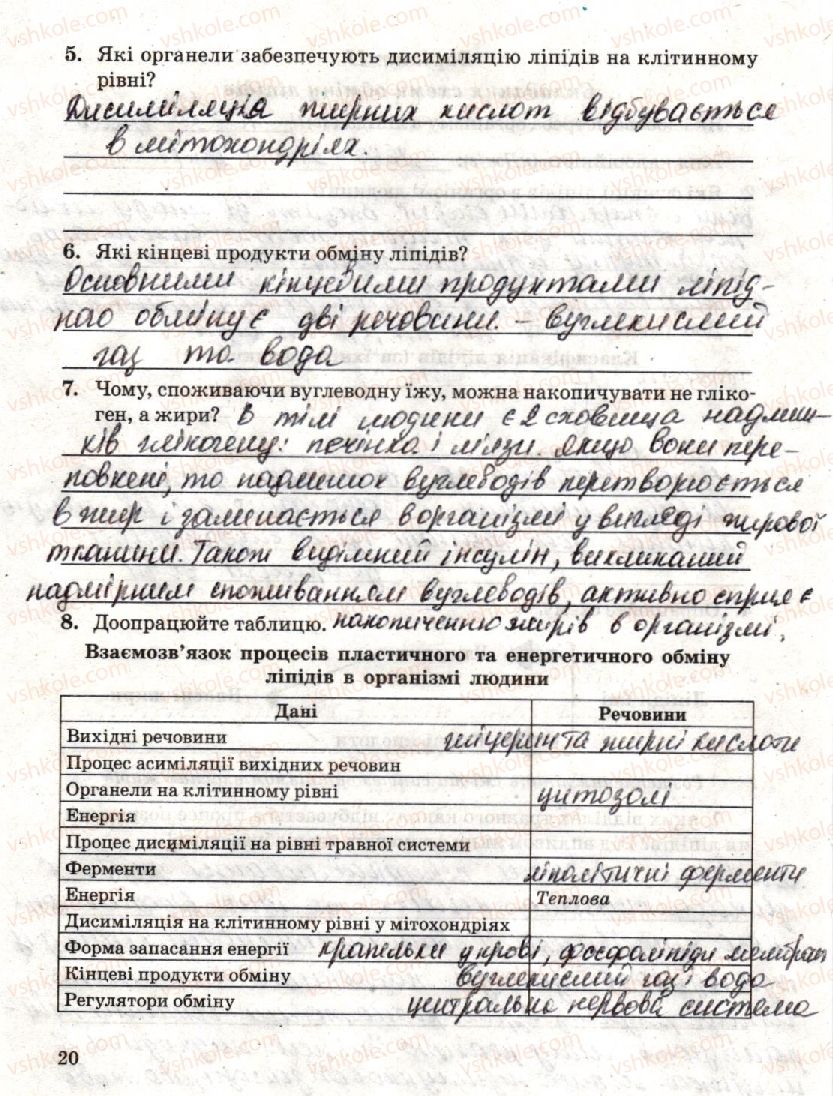 5. Які органели забезпечують дисиміляцію ліпідів на клітинному
рівні?
Дисиміляція жирних кислот відбувається
в мітохондріях.
6. Які кінцеві продукти обміну ліпідів?
Основними кінцевими продуктами ліпід-
ного обміну є дві речовини – вуглекислий
газ та вода
7. Чому, споживаючи вуглеводну їжу, можна накопичувати не гліко-
ген, а жири? В тілі людини є 2 сховища надлиш-
ків глікогену: печінка і м'язи. Якщо вони пере-
повнені, то надлишок вуглеводів перетворюється
в жир і залишається в організмі у вигляді жирової
тканини. Також виділений інсулін, викликаний
надмірним споживанням вуглеводів, активно сприяє
8. Доопрацюйте таблицю. накопиченню жирів в організмі.
Взаємозв'язок процесів пластичного та енергетичного обміну
ліпідів в організмі людини
Дані Речовини
Вихідні речовини гліцерин та жирні кислоти
Процес асиміляції вихідних речовин
Органели на клітинному рівні цитозолі
Енергія
Процес дисиміляції на рівні травної системи
Ферменти ліполітичні ферменти
Енергія Теплова
Дисиміляція на клітинному рівні у мітохондріях
Форма запасання енергії крапельки у крові, фосфоліпіди мембран
Кінцеві продукти обміну вуглекислий газ і вода
Регулятори обміну центральна нервова система
20
vshkole.com